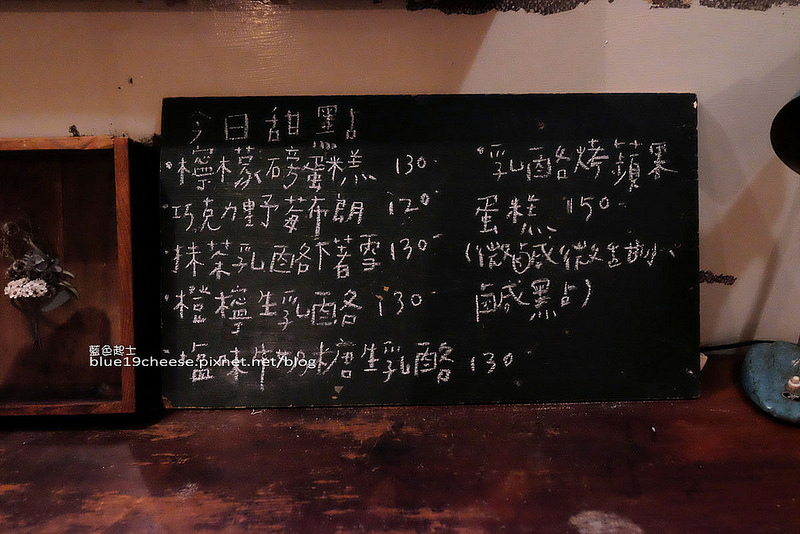 今日甜點
·檸檬磅蛋糕 130-
·巧克力野莓布朗 120-
·抹茶乳酪下著雪 130-
·檸檬生乳酪 130-
·鹽味牛奶糖生乳酪 130
·乳酪烤蘋果
蛋糕 150-
(微鹹微
鹹點)
藍色起士
blue19cheese.pixnet.net/blog